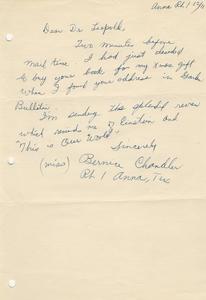 Anna Rt 1 12/11
Dear Dr Leopold,
Two minutes before
mail time I had just decided
to buy your book for my xmas gift
when I found your address in Garden
Bulletin.
I'm sending the splendid review
which reminds me of Einstein and
"This is Our World"
Sincerely
(miss) Bernice Chandler
Rt 1 Anna, Tex